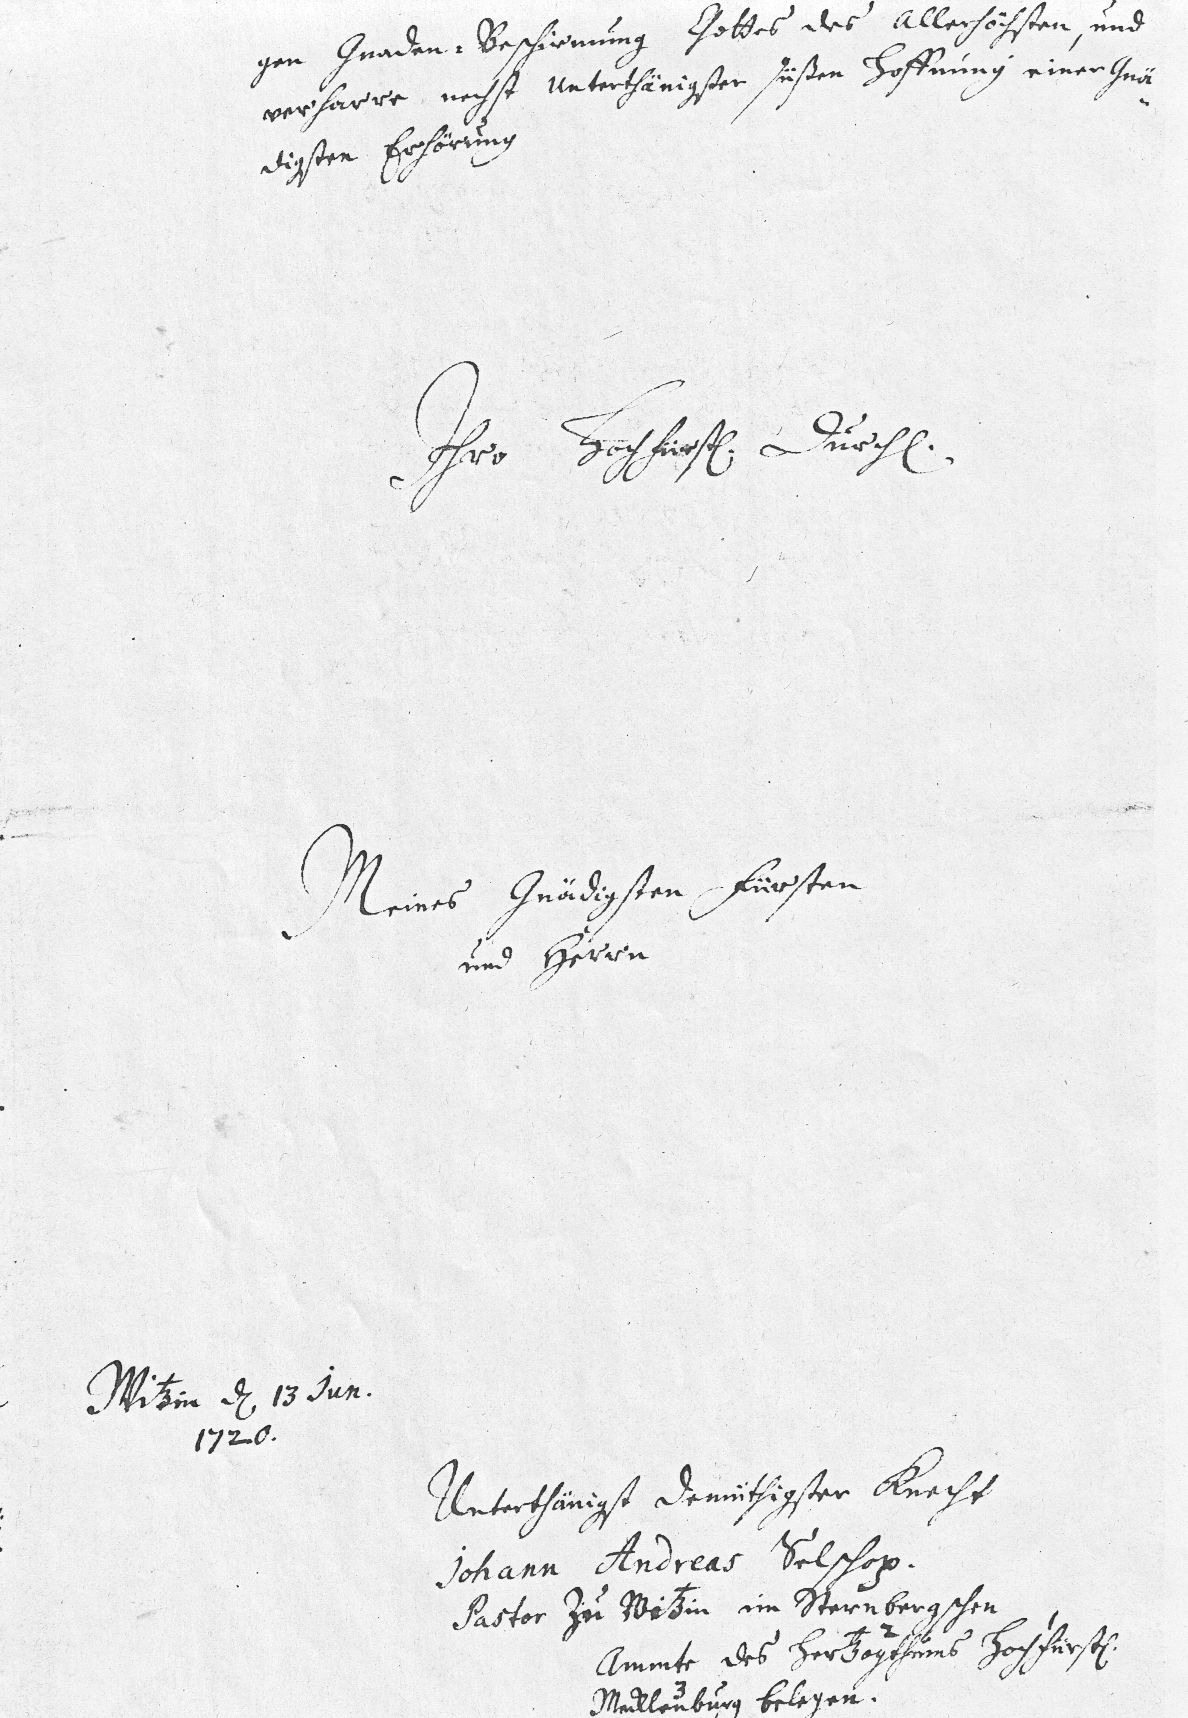 gen Gnaden-Beschirmung Gottes des Allerhöchsten, und
verharre nechst Unterthänigster süßen Hoffnung einer Gnä-
digsten Erhörung
Ihro Hochfürstl. Durchl.
Meines Gnädigsten Fürsten
und Herrn
Witzin d. 13 Jun.
1720.
Unterthänigst demüthigster Knecht
Johann Andreas Selschop.
Pastor zu Witzin im Sternbergschen
Ammte des Hertzogthums 2 Hochfürstl. 1
Mecklenburg 3 belegen.